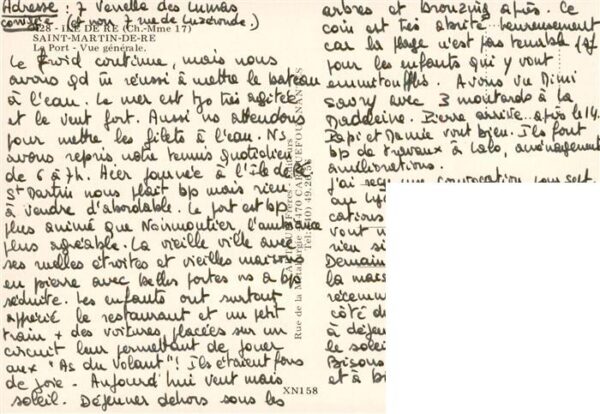 Adresse : 7 Venelle des Lunas
(et non 7 rue de Luzeronde.)
128 - ILE DE RE (Ch.-Mme 17)
SAINT-MARTIN-DE-RE
Le Port - Vue générale.
Le froid continue, mais nous
avons qd m réussi à mettre le bateau
à l'eau. Le mer est tjo très agitée
et le vent fort. Aussi ns attendons
pour mettre les filets à l'eau. Ns
avons repris notre tennis quotidien
de 6 à 7h. Hier journée à l'île de Ré
St Martin nous plait bp mais rien
à vendre d'abordable. Le port est bp
plus animé que Noirmoutier, l'ambiance
plus agréable. La vieille ville avec
ses ruelles étroites et vieilles maisons
en pierre avec belles portes ns a bp
séduits. Les enfants ont surtout
apprécié le restaurant et un petit
train + des voitures placées sur un
circuit leur permettant de jouer
aux "As du Volant"! Ils étaient fous
de joie. Aujourd'hui vent mais
soleil. Déjeuner dehors sous les
arbres et bronzing après. Ce
coin est très abrité heureusement
car la plage n'est pas tenable sf
pour les enfants qui y vont
emmitouflés. Avons vu Mimi
Savry avec 3 moutards à la
Madeleine. Pierre arrive après le 14.
Papi et Mamie vont bien. Ils font
bp de travaux à Lalo, aménagement
améliorations.
J'ai reçu une convocation pour sept.
au
cations
vont
rien si
Demain
la mais
récemm
côté d
à déjeu
le soleil
Bisous
et à bi
Rue de la Métallurgie - 44470 CARQUEFOU - NANTES
Tél. (40) 49.20
XN158